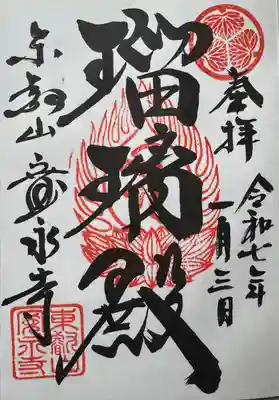 奉拝
令和七年
一月三日
瑠璃殿
東叡山寛永寺
東叡山
寛永寺